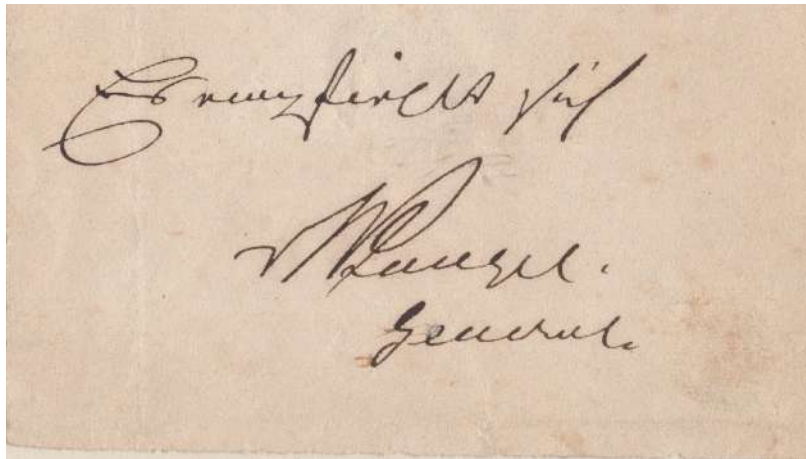 Es empfiehlt sich
v Wrangel.
General.